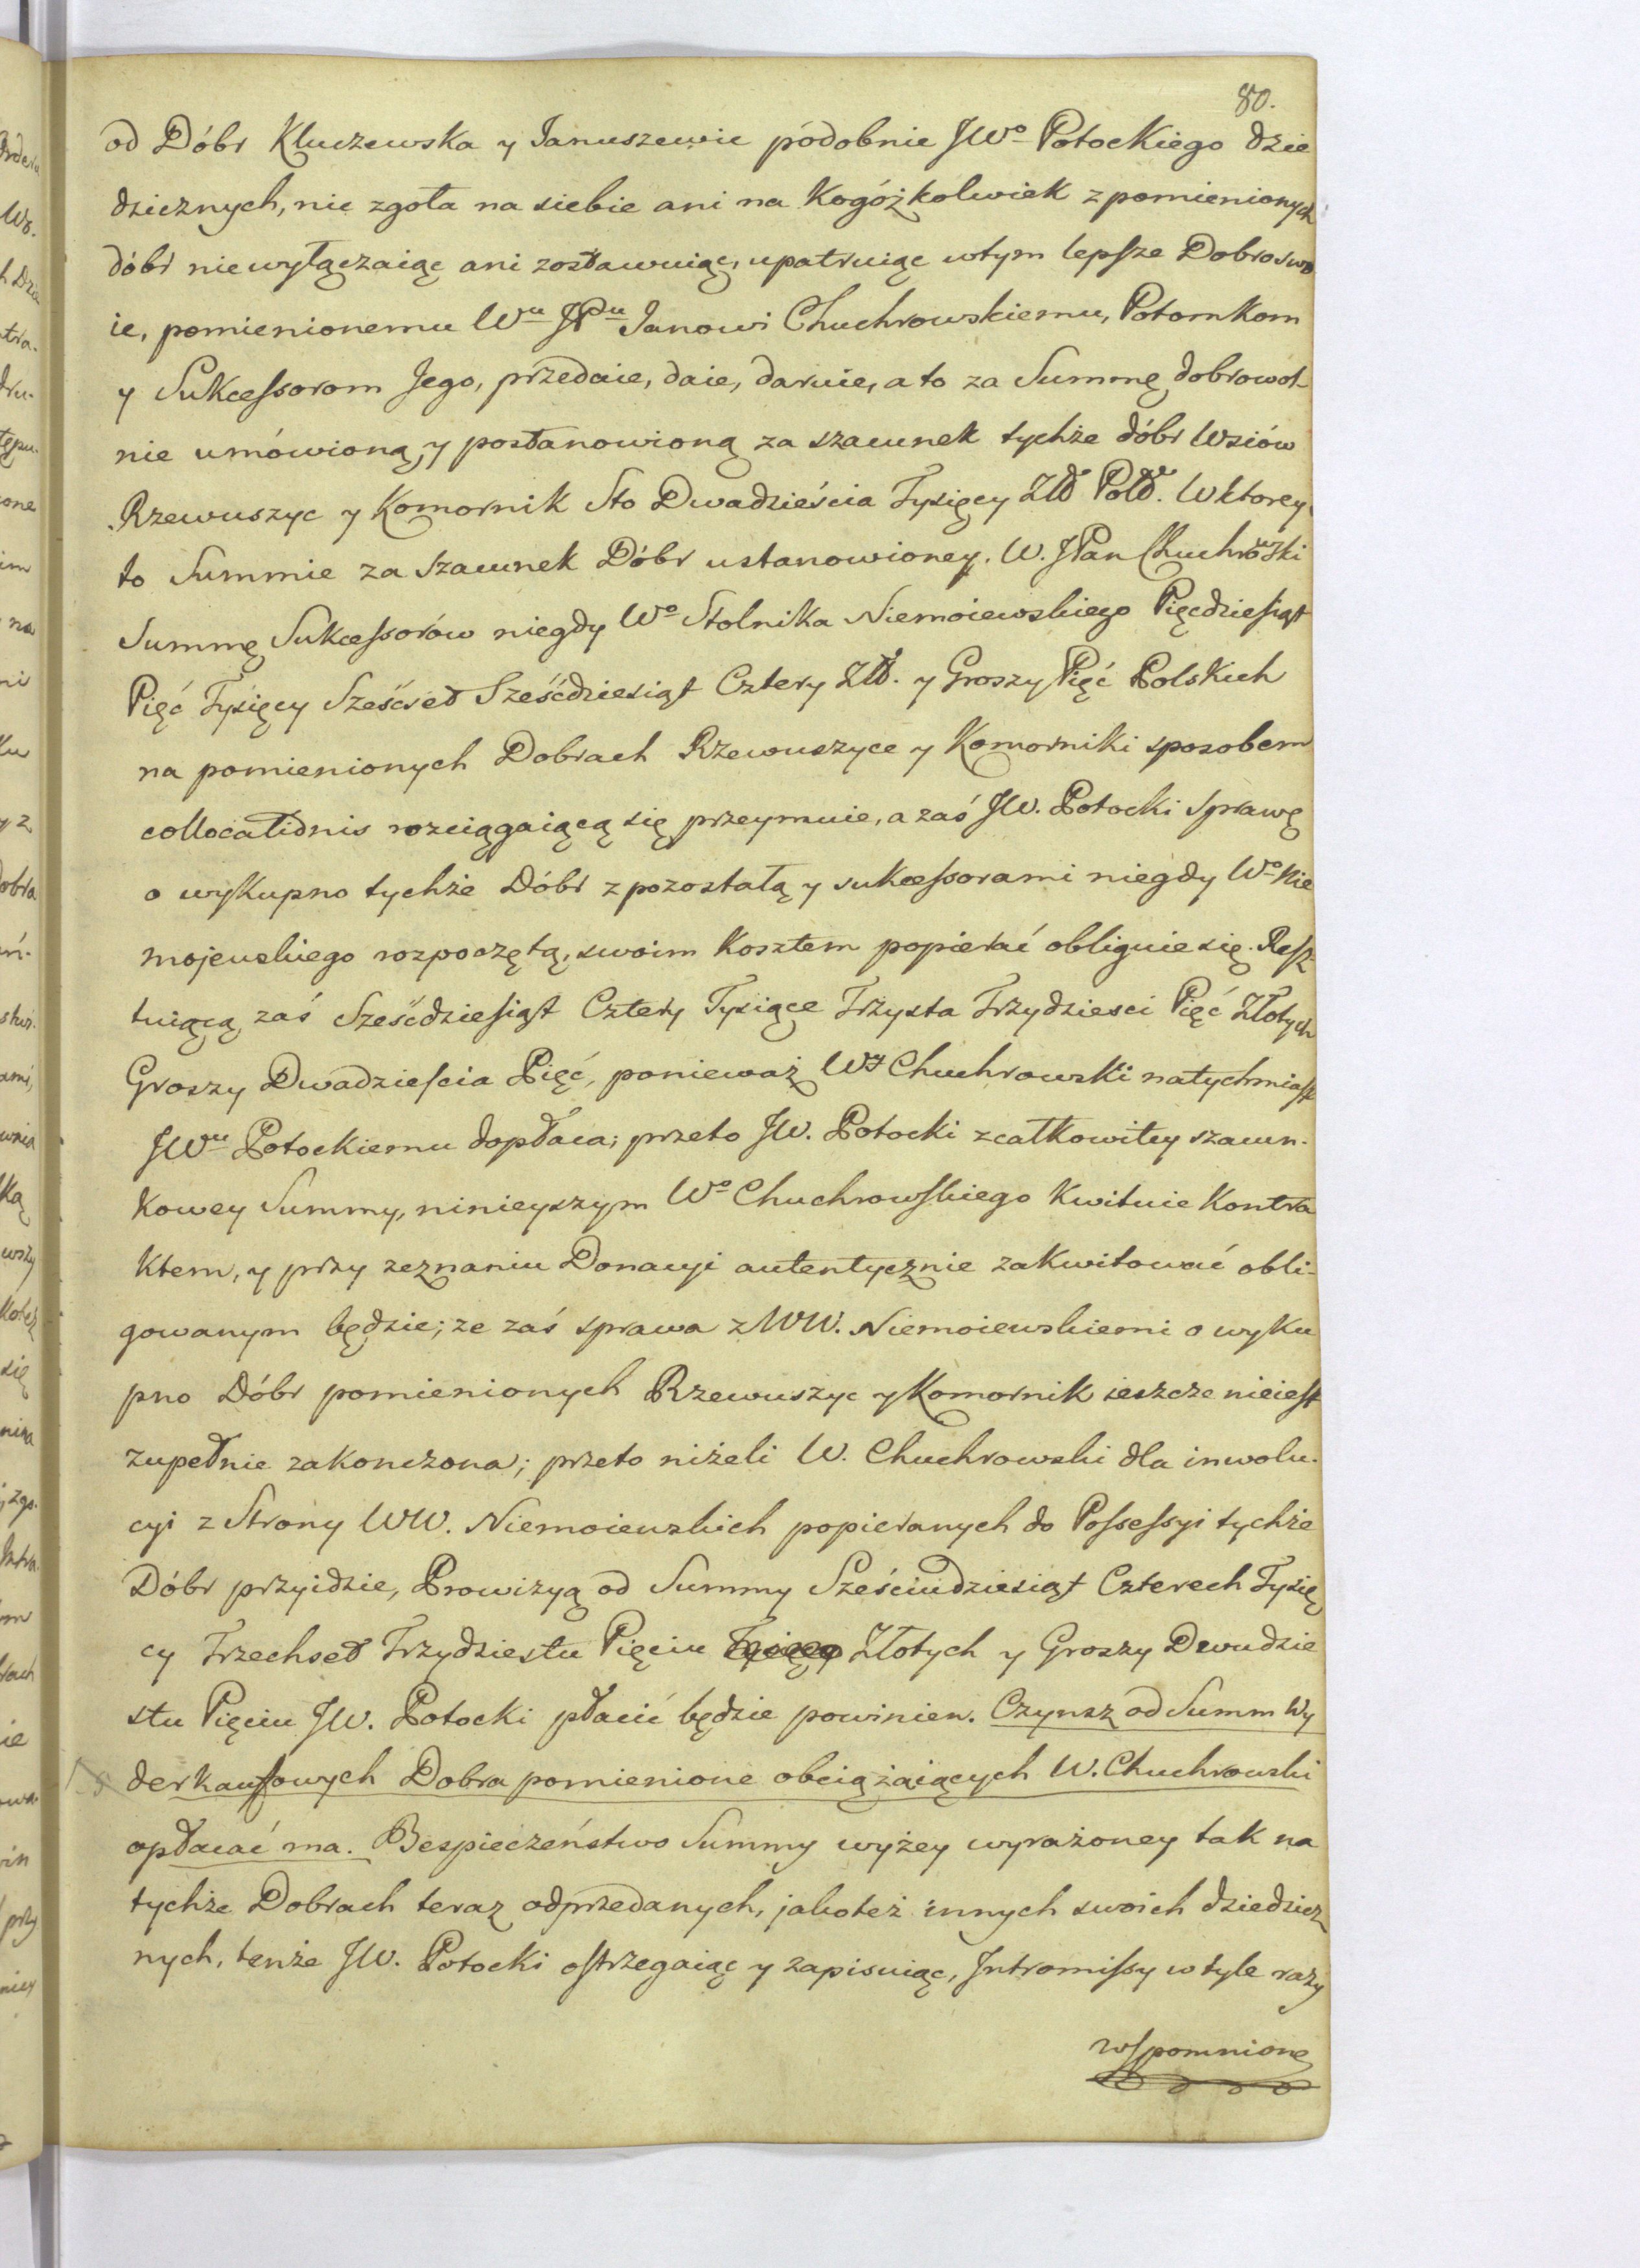 80.
od Dóbr Kluczewska y Januszewic podobnie JWo Potockiego dzie
dzicznych, nic zgoła na siebie ani na kogóżkolwiek z pomienionych
dóbr niewyłączaiąc ani zostawuiąc, upatruiąc wtym lepsze Dobro swo
ie, pomienionemu Wu JPu Janowi Chuchrowskiemu, Potomkom
y Sukcessorom Jego, przedaie, daie, daruie, a to za Summę dobrowol-
nie umówioną, y postanowioną za szacunek tychże dóbr Wsiów
Rzewuszyc y Komornik Sto Dwadzieścia Tysięcy Złł Polł. Wktorey
to Summie za szacunek Dóbr ustanowioney. W. JPan Chuchrowski
Summę Sukcessorów niegdy Wo Stolnika Niemoiewskiego Pięćdziesiąt
Pięć Tysięcy Sześćset Sześćdziesiąt Cztery Złł. y Groszy Pięć Polskich
na pomienionych Dobrach Rzewuszyce y Komorniki sposobem
collocationis rozciągaiącą się przeymuie, a zaś JW. Potocki Sprawę
o wykupno tychże Dóbr z pozostałą y sukcessorami niegdy Wo Nie
mojewskiego rozpoczętą, swoim kosztem popierać obliguie się. Resz
tuiącą zaś Sześćdziesiąt Cztery Tysiące Trzysta Trzydziesci Pięć Złotych
Groszy Dwadzieścia Pięć, ponieważ WJ Chuchrowski natychmiast
JWu Potockiemu dopłaca; przeto JW. Potocki zcałkowitey szacun-
kowey Summy, ninieyszym Wo Chuchrowskiego kwituie kontra
ktem, y przy zeznaniu Donacyi autentycznie zakwitować obli-
gowanym będzie; ze zaś sprawa z WW. Niemoiewskiemi o wyku
pno Dóbr pomienionych Rzewuszyc y Komornik ieszcze nieiest
zupełnie zakonczona; przeto niżeli W. Chuchrowski dla inwolu-
cyi z Strony WW. Niemoiewskich popieranych do Possessyi tychże
Dóbr przyidzie, Prowizyą od Summy Sześciudziesiąt Czterech Tysię
cy Trzechset Trzydziestu Pięciu Tysięcy Złotych y Groszy Dwudzie
stu Pięciu JW. Potocki płacić będzie powinien. Czynsz od Summ Wy
derkauffowych Dobra pomienione obciążaiących W. Chuchrowski
opłacać ma. Bespieczeństwo Summy wyżey wyrażoney tak na
tychże Dobrach teraz odprzedanych, jakoteż innych swoich dziedzicz
nych, tenże JW. Potocki ostrzegaiąc y zapisuiąc, Intromissy wtyle razy
wspomnione